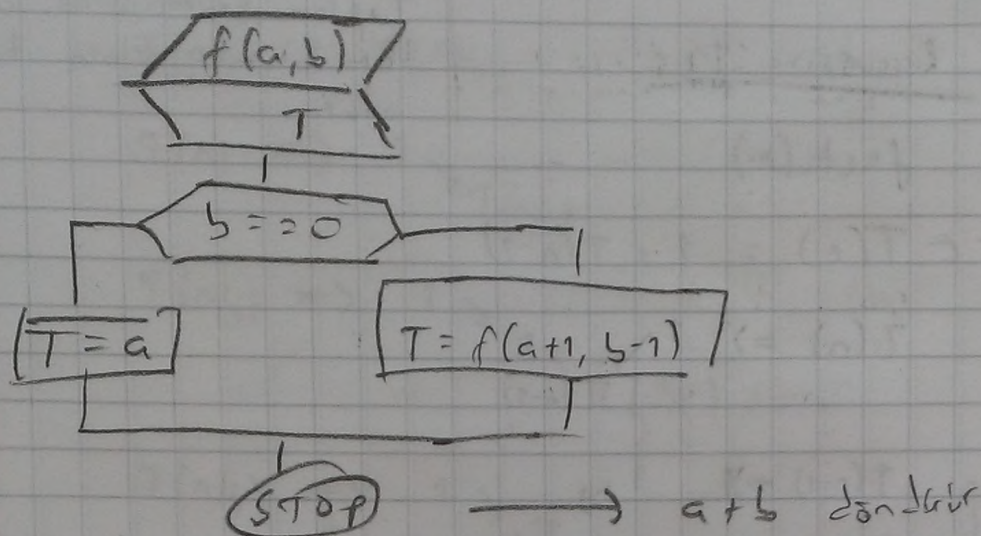 f(a,b)
T
b==0
T=a
T=f(a+1, b-1)
STOP
a+b döndürür